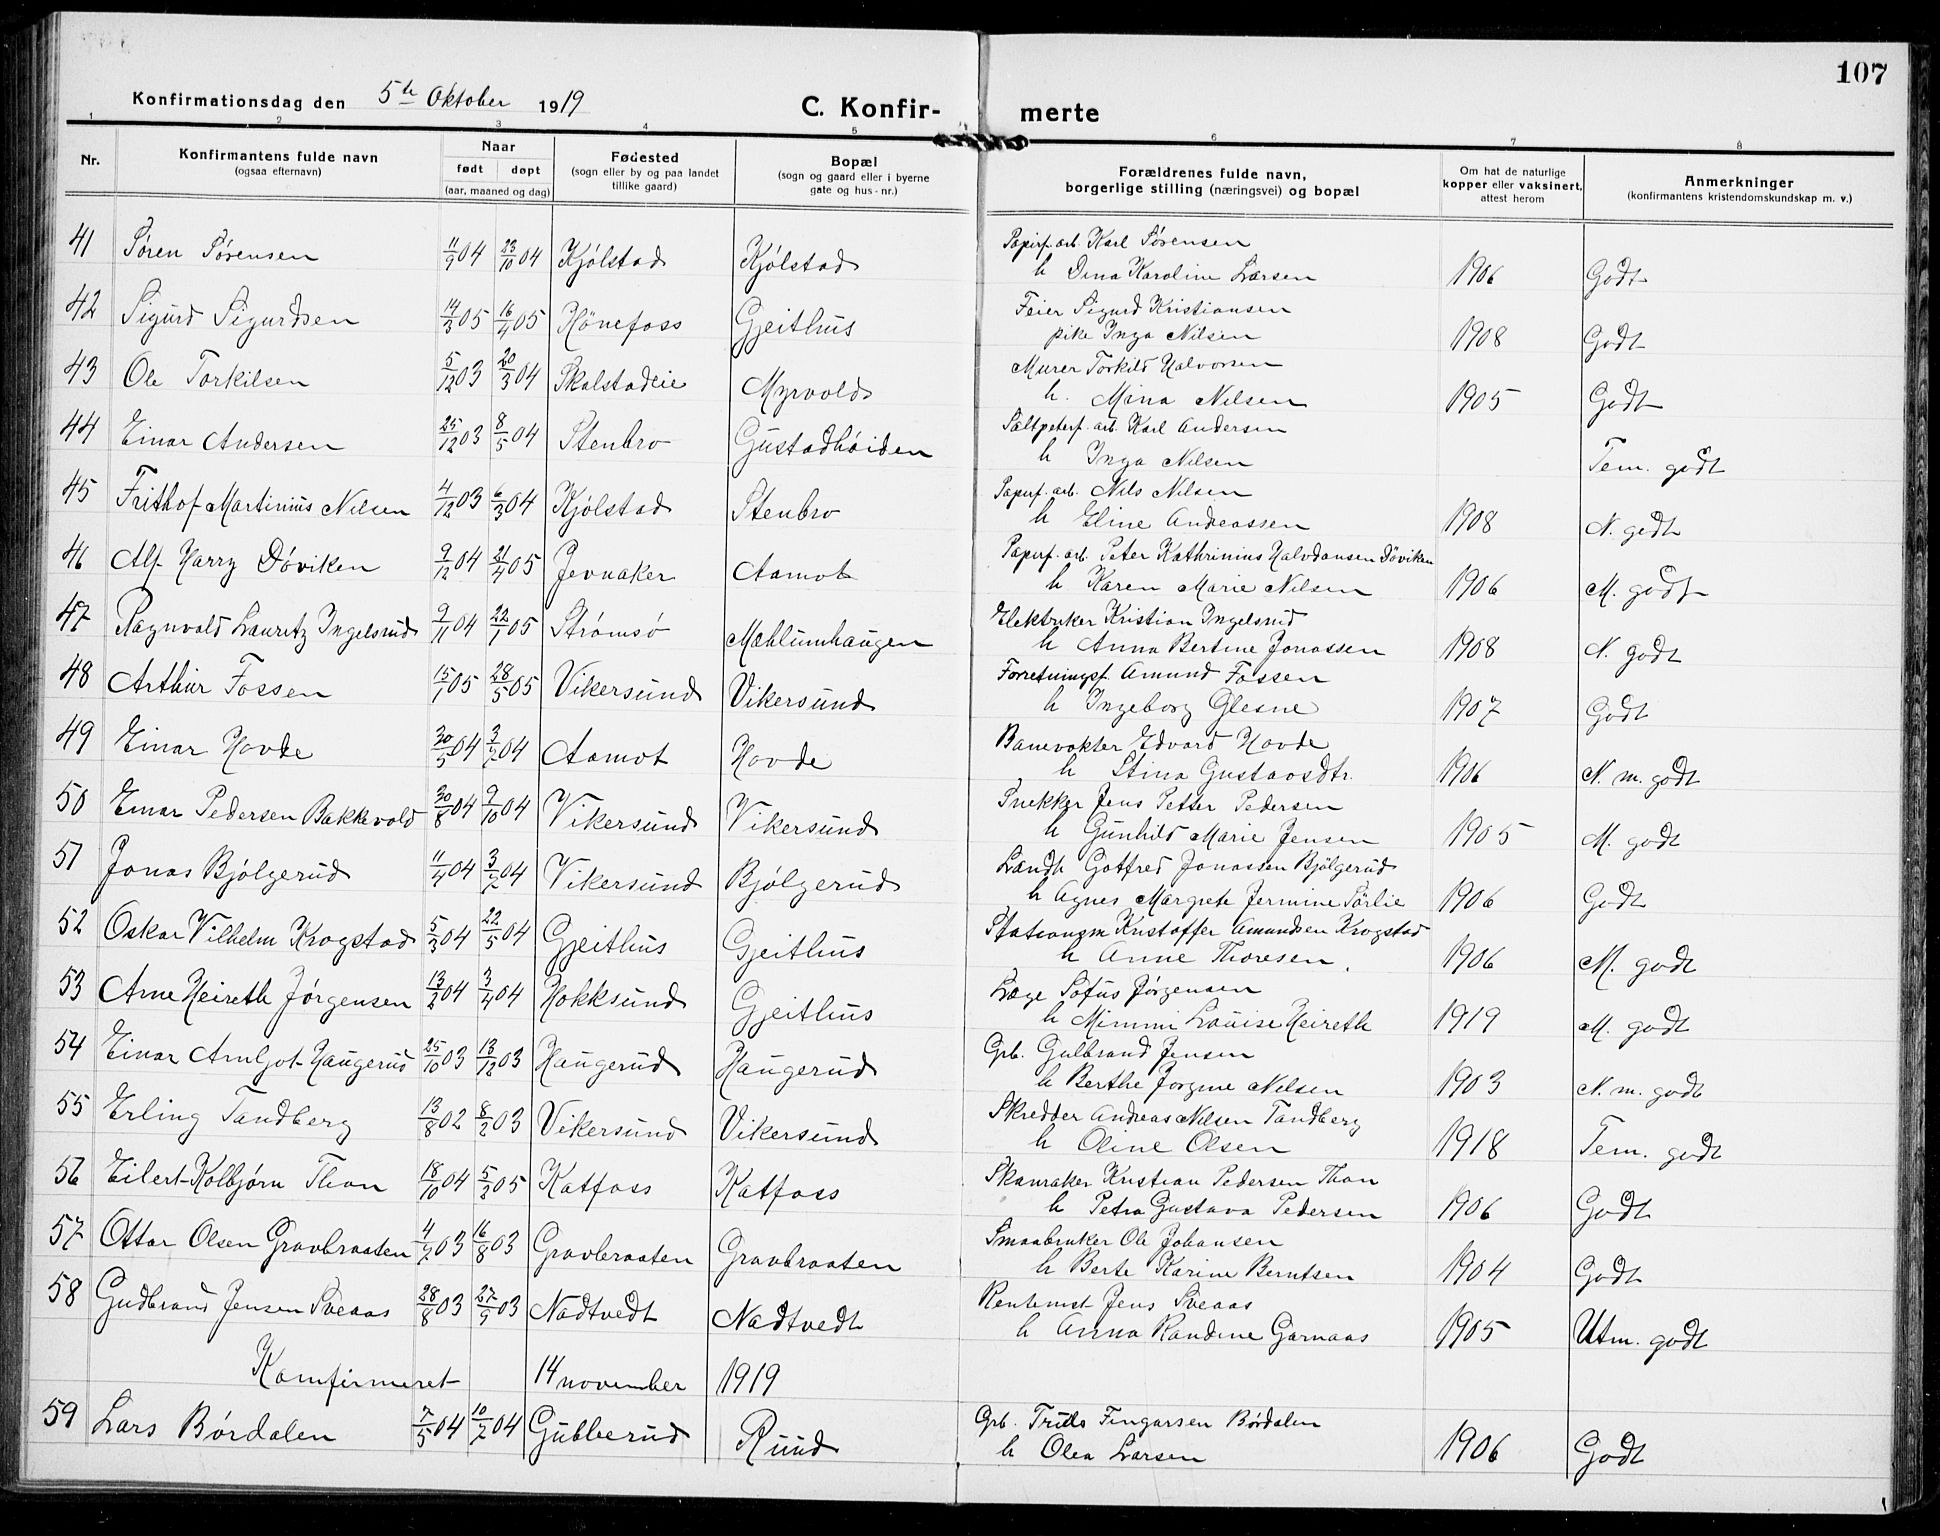 107
Konfirmationsdag den 5te Oktober 1919 C. Konfir- merte
1 2 3 4 5 6 7 8
Nr. Konfirmantens fulde navn (ogsaa efternavn) Naar født døpt (aar, maaned og dag) Fødested (sogn eller by og paa landet tillike gaard) Bopæl (sogn og gaard eller i byerne gate og hus-nr.) Forældrenes fulde navn, borgerlige stilling (næringsvei) og bopæl Om hat de naturlige kopper eller vaksinert, attest herom Anmerkninger (konfirmantens kristendomskundskap m. v.)
41 Søren Sørensen 11/9 04 23/10 04 Kjølstad Kjølstad Papirf. arb. Karl Sørensen
h Dina Karoline Larsen 1906 Godt
42 Sigurd Sigurdsen 14/3 05 16/4 05 Hönefoss Gjeithus Feier Sigurd Kristiansen
pike Inga Nilsen 1908 Godt
43 Ole Torkilsen 5/12 03 20/3 04 Skalstadeie Myrvold Murer Torkild Halvorsen
h. Mina Nilsen 1905 Godt
44 Einar Andersen 25/12 03 8/5 04 Stenbro Gustadhöiden Saltpeterf. arb. Karl Andersen
h Inga Nilsen Tem. godt
45 Frithof Martinius Nilsen 4/12 03 6/3 04 Kjølstad Stenbro Papirf. arb. Nils Nilsen
h Eline Andreassen 1908 N. godt
46 Alf Harry Döviken 9/12 04 21/4 05 Jevnaker Aamot Papirf. arb. Peter Kathrinius Halvdansen Döviken
h Karen Marie Nilsen 1906 M. godt
47 Ragnvald Lauritz Ingelsrud 9/11 04 22/1 05 Strømsø Mæhlumhaugen Elektriker Kristian Ingelsrud
h Anna Bertine Jonassen 1908 N. godt
48 Arthur Fossen 15/1 05 28/5 05 Vikersund Vikersund Forretningsf. Amund Fossen
h Ingeborg Glesne 1907 Godt
49 Einar Hovde 30/5 04 3/7 04 Aamot Hovde Banevokter Edvard Hovde
h Stina Gustavsdtr. 1906 N. m. godt
50 Einar Pedersen Bakkevold 30/8 04 9/10 04 Vikersund Vikersund Snekker Jens Petter Pedersen
h Gunhild Marie Jensen 1905 M. godt
51 Jonas Bjølgerud 11/4 04 3/7 04 Vikersund Bjølgerud Landh. Gotfred Jonassen Bjölgerud
h Agnes Margrete Jermine Sörlie 1906 Godt
52 Oskar Vilhelm Krogstad 5/3 04 22/5 04 Gjeithus Gjeithus Stationsm Kristoffer Amundsen Krogstad
h Anne Thoresen. 1906 M. godt
53 Arne Heireth Jørgensen 13/2 04 3/4 04 Hokksund Gjeithus Læge Sofus Jørgensen
h Mimmi Louise Heireth 1919 M. godt
54 Einar Arnljot Haugerud 25/10 03 13/12 03 Haugerud Haugerud Grb. Gulbrand Jensen
h Berthe Jorgine Nilsen 1903 N. m. godt
55 Erling Tandberg 13/8 02 8/2 03 Vikersund Vikersund Skredder Andreas Nilsen Tandberg
h Oline Olsen 1918 Tem. godt
56 Eilert Kolbjørn Thon 18/10 04 5/2 05 Katfoss Katfoss Skomaker Kristian Pedersen Thon
h Petra Gustava Pedersen 1906 Godt
57 Ottar Olsen Gravbraaten 4/7 03 16/8 03 Gravbraaten Gravbraaten Smaabruker Ole Johansen
h Berte Karine Berntsen 1904 Godt
58 Gudbrand Jensen Sveaas 28/8 03 27/9 03 Nadtvedt Nadtvedt Rentenist Jens Sveaas
h Anna Randine Garnaas 1905 Utm. godt
Komfirmeret 14 november 1919
59 Lars Børdalen 7/5 04 10/7 04 Gubberud Ruud Grb. Truls Fingarsen Børdalen
h Olea Larsen 1906 Godt